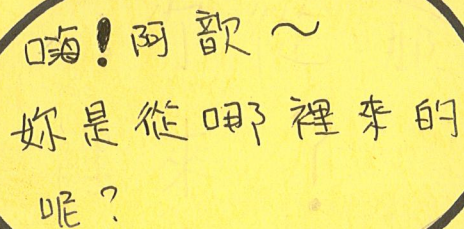 嗨!阿歆~
妳是從哪裡來的
呢?